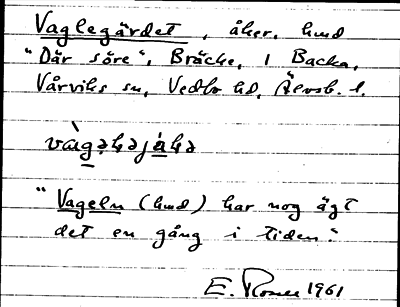 Vaglegärdet, åker, hmd
"Där söre", Bräcke, 1 Backa,
Vårviks sn, Vedbo hd, Älvsb. l.
"Vageln (hmd) har nog ägt
det en gång i tiden."
E. 1961